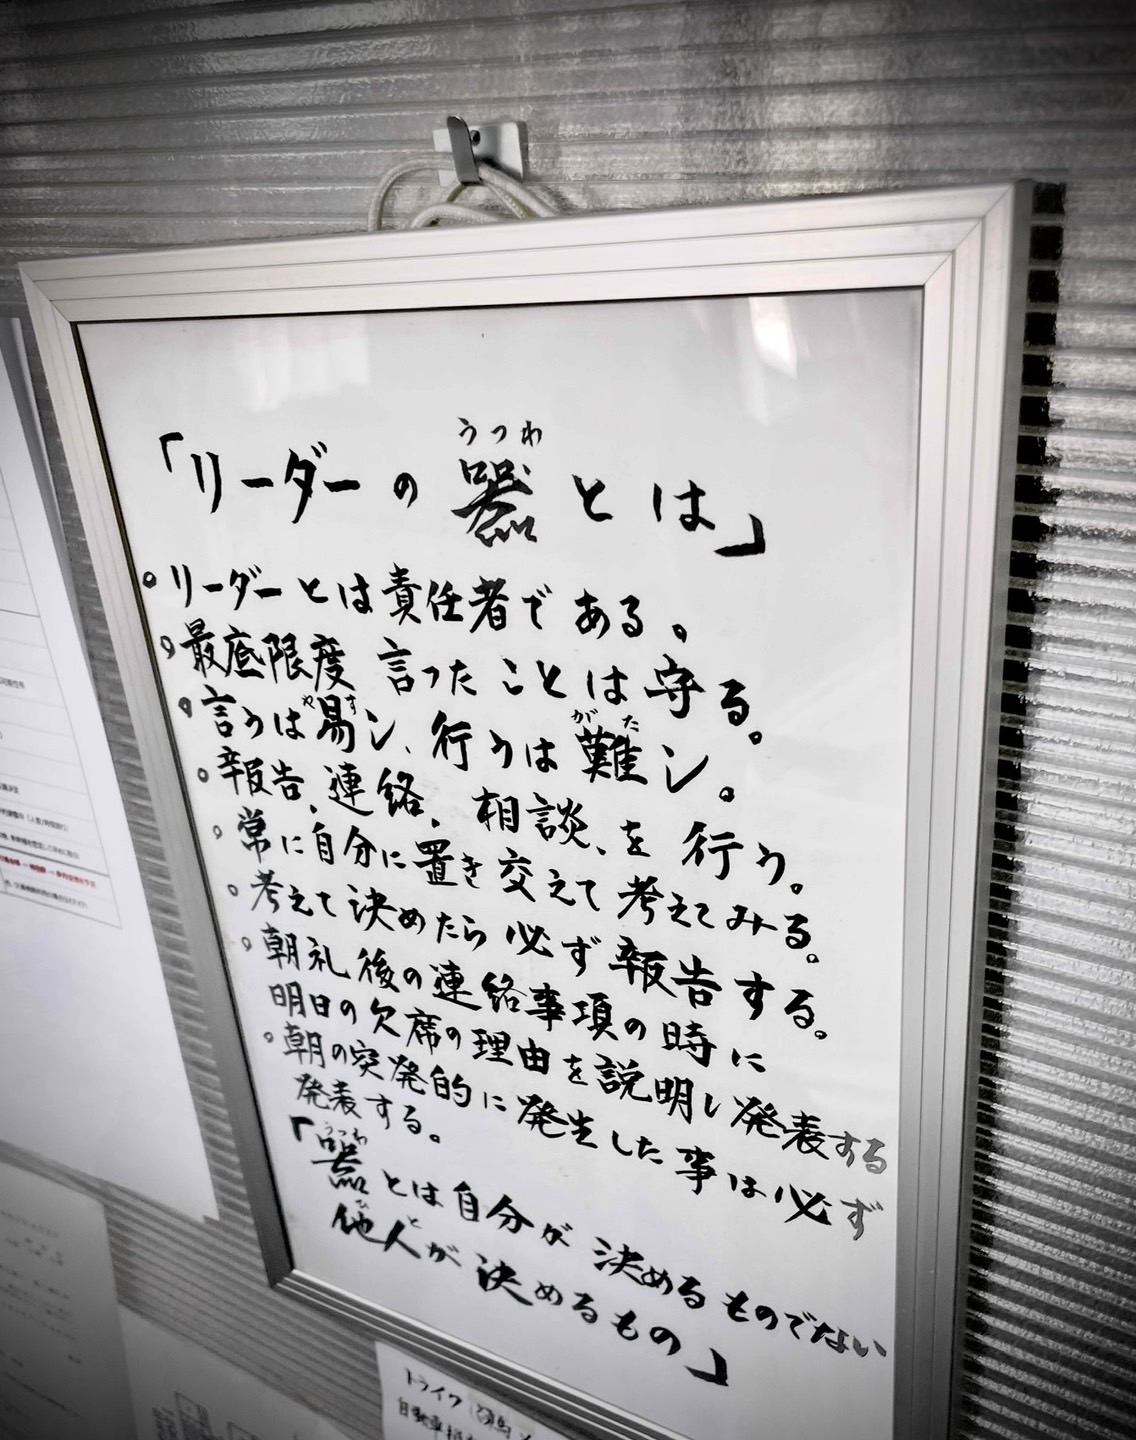 うつわ
「リーダーの器とは」
。リーダーとは責任者である。
。最底限度 言ったことは守る。
やす がた
。言うは易シ、行うは難シ。
。報告、連絡、相談、を行う。
。常に自分に置き交えて考えてみる。
。考えて決めたら必ず報告する。
。朝礼後の連絡事項の時に
明日の欠席の理由を説明し発表する
。朝の突発的に発生した事は必ず
発表する。
うつわ
「器とは自分が決めるものでない
ひと
他人が決めるもの」
トライク
自動車